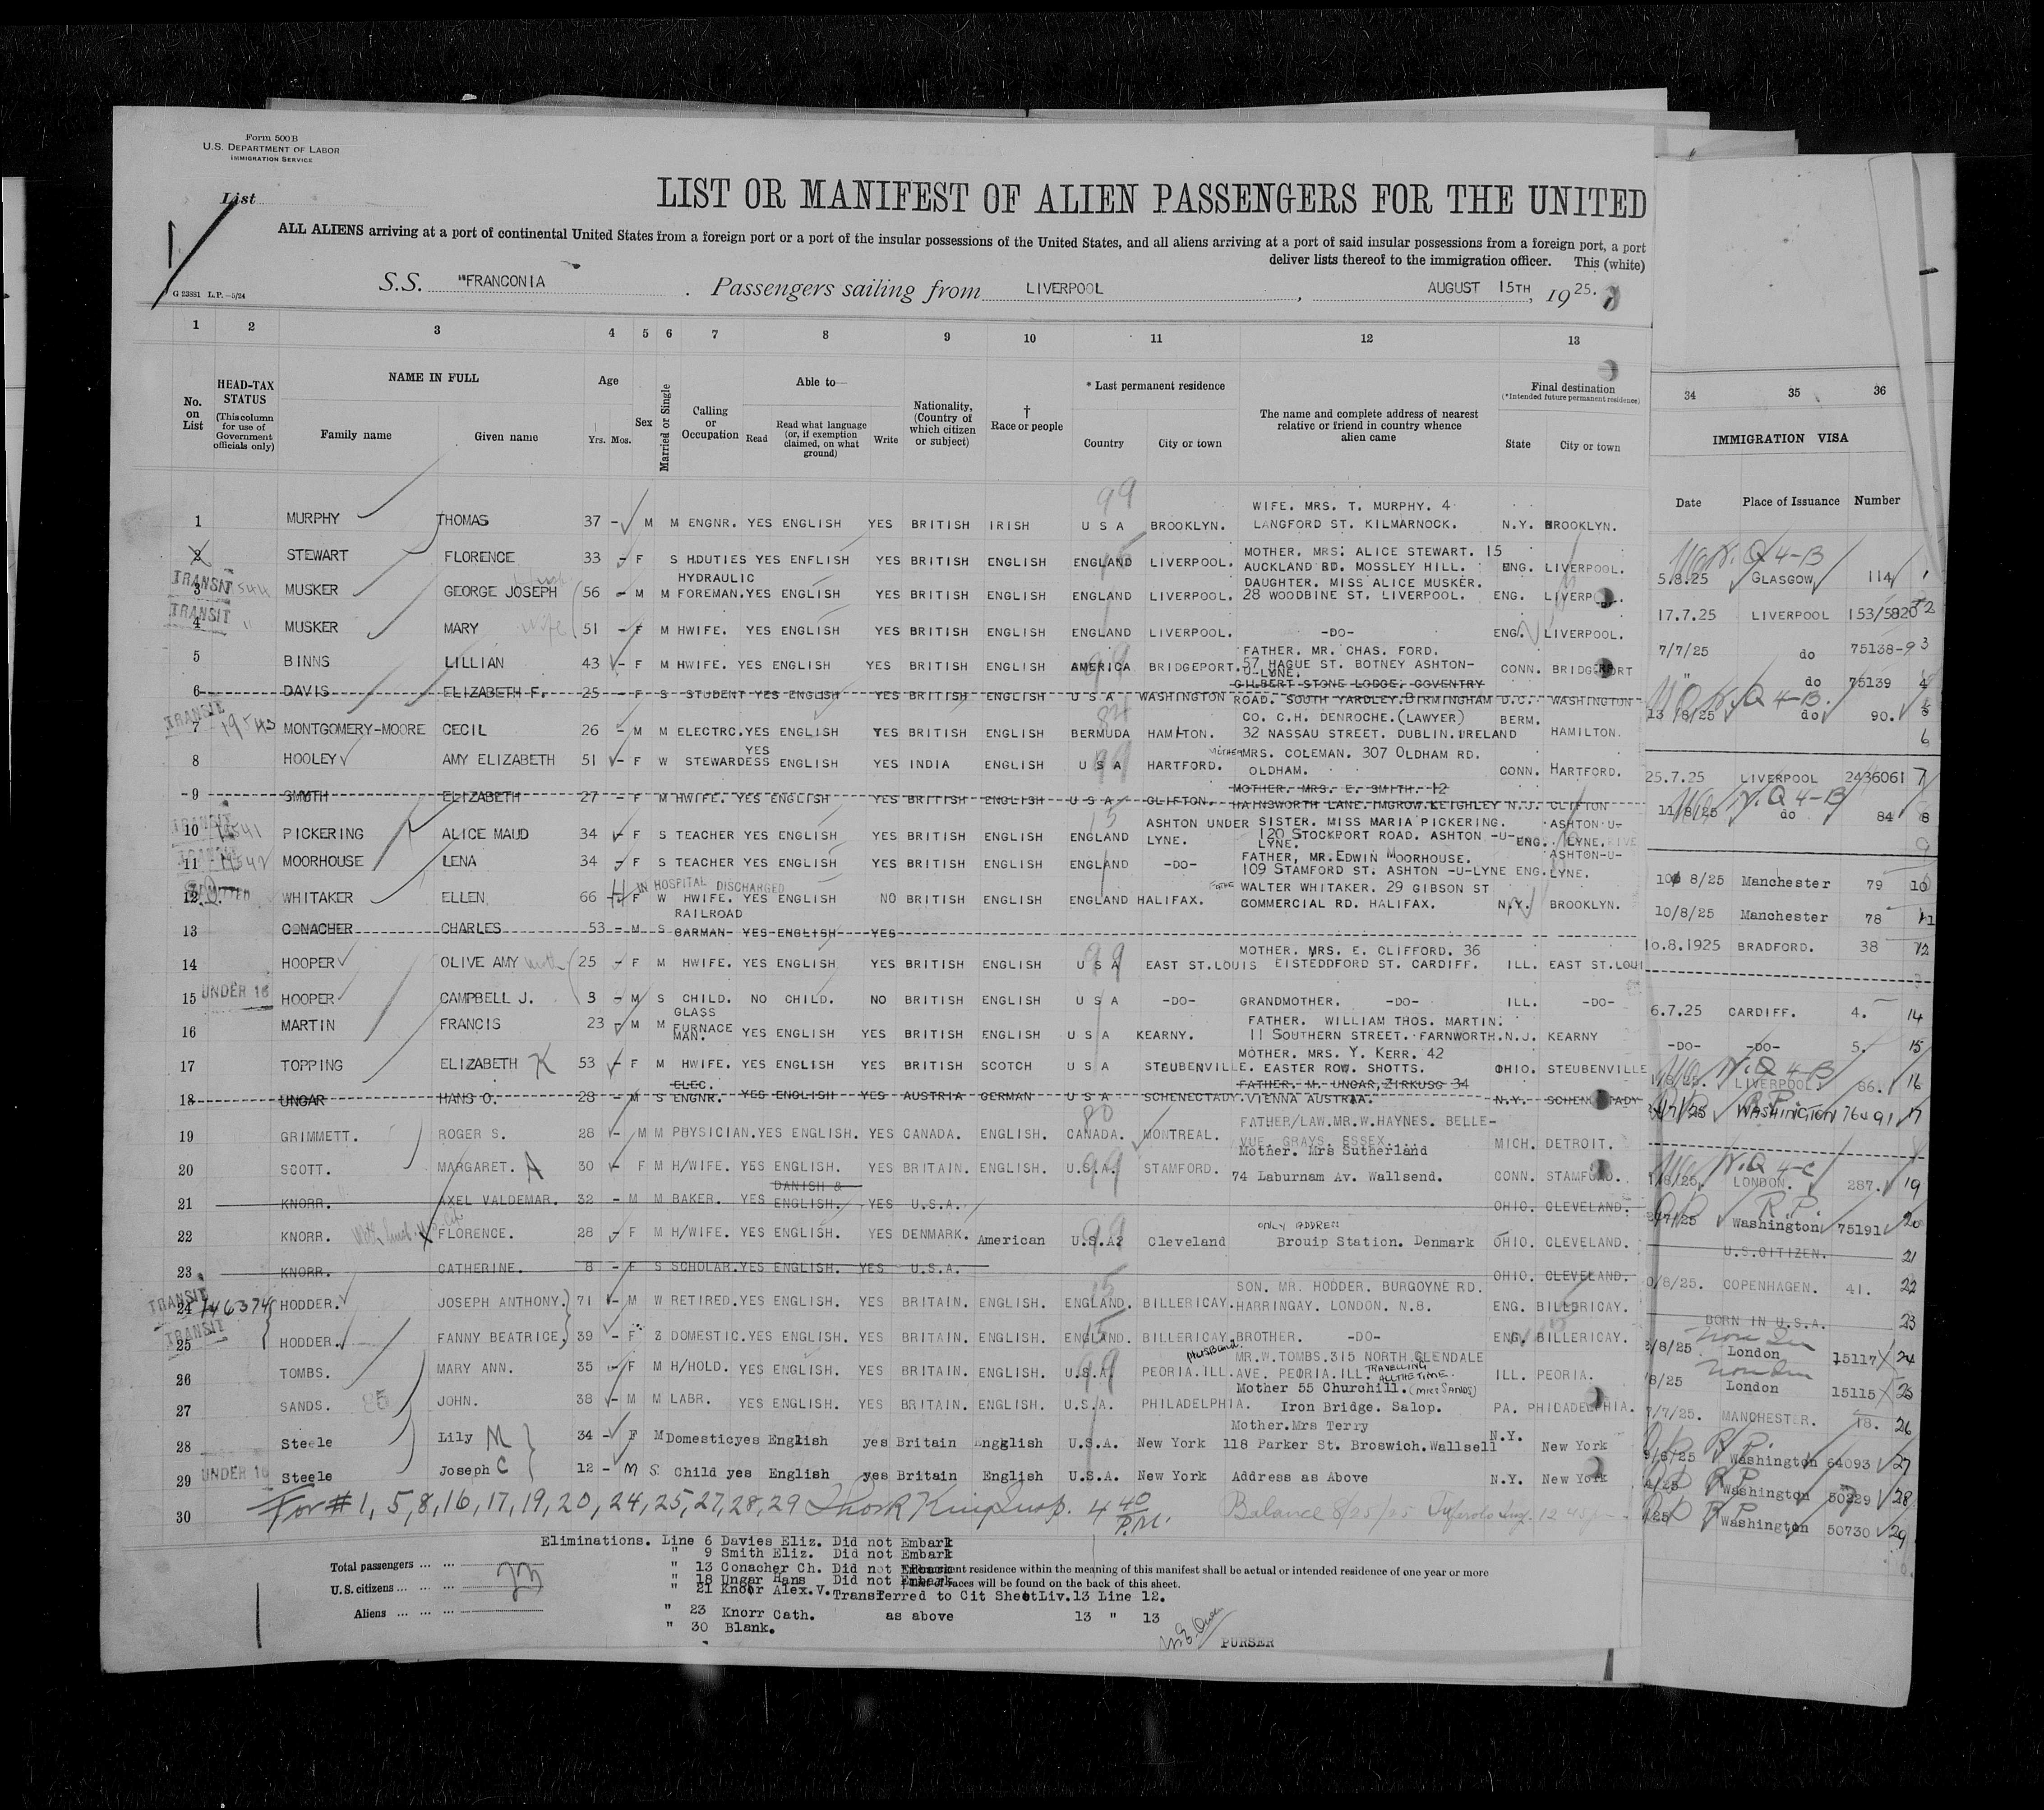 Form 500B
U.S. DEPARTMENT OF LABOR
IMMIGRATION SERVICE
List
1
LIST OR MANIFEST OF ALIEN PASSENGERS FOR THE UNITED
ALL ALIENS arriving at a port of continental United States from a foreign port or a port of the insular possessions of the United States, and all aliens arriving at a port of said insular possessions from a foreign port, a port
deliver lists thereof to the immigration officer. This (white)
S.S. "FRANCONIA . Passengers sailing from LIVERPOOL , AUGUST 15TH, 1925.
G 23881 L.P.—5/24
1 2 3 4 5 6 7 8 9 10 11 12 13 34 35 36
No. on List HEAD-TAX STATUS (This column for use of Government officials only) NAME IN FULL Family name Given name Age Yrs. Mos. Sex Married or Single Calling or Occupation Able to— Read Read what language (or, if exemption claimed, on what ground) Write Nationality, (Country of which citizen or subject) † Race or people * Last permanent residence Country City or town The name and complete address of nearest relative or friend in country whence alien came Final destination (*Intended future permanent residence) State City or town
IMMIGRATION VISA Date Place of Issuance Number
99 WIFE. MRS. T. MURPHY. 4
1 MURPHY THOMAS 37 - M M ENGNR. YES ENGLISH YES BRITISH IRISH U S A BROOKLYN. LANGFORD ST. KILMARNOCK. N.Y. BROOKLYN.
2 STEWART FLORENCE 33 - F S H.DUTIES YES ENFLISH YES BRITISH ENGLISH ENGLAND LIVERPOOL. MOTHER. MRS. ALICE STEWART. 15 AUCKLAND RD. MOSSLEY HILL. ENG. LIVERPOOL.
TRANSIT
3 MUSKER GEORGE JOSEPH 56 - M M HYDRAULIC FOREMAN. YES ENGLISH YES BRITISH ENGLISH ENGLAND LIVERPOOL. DAUGHTER. MISS ALICE MUSKER. 28 WOODBINE ST. LIVERPOOL. ENG. LIVERPOOL.
TRANSIT
4 MUSKER MARY wife 51 - F M HWIFE. YES ENGLISH YES BRITISH ENGLISH ENGLAND LIVERPOOL. -DO- ENG. LIVERPOOL.
5 BINNS LILLIAN 43 - F M HWIFE. YES ENGLISH YES BRITISH ENGLISH AMERICA BRIDGEPORT. FATHER. MR. CHAS. FORD. 57 HAGUE ST. BOTNEY ASHTON-U-LYNE. CONN. BRIDGEPORT
6 DAVIS ELIZABETH F. 25 - F S STUDENT YES ENGLISH YES BRITISH ENGLISH U S A WASHINGTON GILBERT STONE LODGE, COVENTRY ROAD. SOUTH YARDLEY. BIRMINGHAM D.C. WASHINGTON
TRANSIT
7 MONTGOMERY-MOORE CECIL 26 - M M ELECTRC. YES ENGLISH YES BRITISH ENGLISH 84 BERMUDA HAMILTON. CO. C.H. DENROCHE. (LAWYER) 32 NASSAU STREET. DUBLIN. IRELAND BERM. HAMILTON.
8 HOOLEY AMY ELIZABETH 51 - F W STEWARDESS YES ENGLISH YES INDIA ENGLISH U S A HARTFORD. MOTHER MRS. COLEMAN. 307 OLDHAM RD. OLDHAM. CONN. HARTFORD.
9 SMITH ELIZABETH 27 - F M HWIFE. YES ENGLISH YES BRITISH ENGLISH U S A CLIFTON. MOTHER. MRS. E. SMITH. 12 HAINSWORTH LANE. IMGROW. KEIGHLEY N.J. CLIFTON
TRANSIT
10 PICKERING ALICE MAUD 34 - F S TEACHER YES ENGLISH YES BRITISH ENGLISH 15 ENGLAND ASHTON UNDER LYNE. SISTER. MISS MARIA PICKERING. 120 STOCKPORT ROAD. ASHTON -U-LYNE. ENG. ASHTON-U-LYNE.
11 MOORHOUSE LENA 34 - F S TEACHER YES ENGLISH YES BRITISH ENGLISH ENGLAND -DO- FATHER, MR. EDWIN MOORHOUSE. 109 STAMFORD ST. ASHTON -U-LYNE ENG. ASHTON-U-LYNE.
12 WHITAKER ELLEN 66 - F W IN HOSPITAL DISCHARGED HWIFE. YES ENGLISH NO BRITISH ENGLISH ENGLAND HALIFAX. WALTER WHITAKER. 29 GIBSON ST COMMERCIAL RD. HALIFAX. N.Y. BROOKLYN.
13 CONACHER CHARLES 53 - M S RAILROAD CARMAN- YES ENGLISH YES
14 HOOPER OLIVE AMY 25 - F M HWIFE. YES ENGLISH YES BRITISH ENGLISH 99 U S A EAST ST. LOUIS MOTHER. MRS. E. CLIFFORD. 36 EISTEDDFORD ST. CARDIFF. ILL. EAST ST. LOUI
15 UNDER 16 HOOPER CAMPBELL J. 3 - M S CHILD. NO CHILD. NO BRITISH ENGLISH U S A -DO- GRANDMOTHER. -DO- ILL. -DO-
16 MARTIN FRANCIS 23 - M M GLASS FURNACE MAN. YES ENGLISH YES BRITISH ENGLISH U S A KEARNY. FATHER. WILLIAM THOS. MARTIN. 11 SOUTHERN STREET. FARNWORTH. N.J. KEARNY
17 TOPPING ELIZABETH K 53 - F M HWIFE. YES ENGLISH YES BRITISH SCOTCH U S A STEUBENVILLE. MOTHER. MRS. Y. KERR. 42 EASTER ROW. SHOTTS. OHIO. STEUBENVILLE
18 UNGAR HANS O. 28 - M S ELEC. ENGNR. YES ENGLISH YES AUSTRIA GERMAN U S A SCHENECTADY. FATHER. M. UNGAR, ZIRKUSG 34 VIENNA AUSTRIA. N.Y. SCHENECTADY
19 GRIMMETT. ROGER S. 28 - M M PHYSICIAN. YES ENGLISH. YES CANADA. ENGLISH. 80 CANADA. MONTREAL. FATHER/LAW. MR. W. HAYNES. BELLE-VUE. GRAYS. ESSEX.... MICH. DETROIT.
20 SCOTT. MARGARET. A 30 - F M H/WIFE. YES ENGLISH. YES BRITAIN. ENGLISH. U.S.A. 99 STAMFORD. Mother. Mrs Sutherland 74 Laburnam Av. Wallsend. CONN. STAMFORD.
21 KNORR. AXEL VALDEMAR. 32 - M M BAKER. YES DANISH & ENGLISH. YES U.S.A. OHIO. CLEVELAND.
22 KNORR. FLORENCE. 28 - F M H/WIFE. YES ENGLISH. YES DENMARK. American U.S.A? 99 Cleveland ONLY ADDRESS Brouip Station. Denmark OHIO. CLEVELAND.
23 KNORR. CATHERINE. 8 - F S SCHOLAR. YES ENGLISH. YES U.S.A. OHIO. CLEVELAND.
TRANSIT
24 HODDER. JOSEPH ANTHONY. 71 - M W RETIRED. YES ENGLISH. YES BRITAIN. ENGLISH. 15 ENGLAND. BILLERICAY. SON. MR. HODDER. BURGOYNE RD. HARRINGAY. LONDON. N.8. ENG. BILLERICAY.
TRANSIT
25 HODDER. FANNY BEATRICE, 39 - F S DOMESTIC. YES ENGLISH. YES BRITAIN. ENGLISH. 15 ENGLAND. BILLERICAY. BROTHER. -DO- ENG. BILLERICAY.
26 TOMBS. MARY ANN. 35 - F M H/HOLD. YES ENGLISH. YES BRITAIN. ENGLISH. U.S.A. 99 PEORIA. ILL. HUSBAND. MR. W. TOMBS. 315 NORTH GLENDALE AVE. PEORIA. ILL. TRAVELLING ALL THE TIME. ILL. PEORIA.
27 SANDS. 85 JOHN. 38 - M M LABR. YES ENGLISH. YES BRITAIN. ENGLISH. U.S.A. PHILADELPHIA. Mother 55 Churchill. (MRS SANDS) Iron Bridge. Salop. PA. PHILADELPHIA.
28 Steele Lily M 34 - F M Domestic yes English yes Britain Engglish U.S.A. New York Mother. Mrs Terry 118 Parker St. Broswich. Wallsell N.Y. New York
29 UNDER 16 Steele Joseph C 12 - M S Child yes English yes Britain English U.S.A. New York Address as Above N.Y. New York
30 For # 1, 5, 8, 16, 17, 19, 20, 24, 25, 27, 28, 29 4 40 P.M. Balance 8/25/25
N.Q 4-B
5.8.25 GLASGOW 114 1
17.7.25 LIVERPOOL 153/5820 2
7/7/25 do 75138-9 3
" do 75139 4
N.Q 4-B.
13/8/25 do 90. 5
6
25.7.25 LIVERPOOL 2436061 7
N.Q 4-B
11/8/25 do 84 8
9
10 8/25 Manchester 79 10
10/8/25 Manchester 78 11
10.8.1925 BRADFORD. 38 12
6.7.25 CARDIFF. 4. 14
-DO- -DO- 5. 15
N.Q 4-B
LIVERPOOL. 86. 16
WASHINGTON 76491 17
N.Q 4-C
LONDON. 287. 19
R.P.
Washington 75191 20
U.S. CITIZEN. 21
COPENHAGEN. 41. 22
BORN IN U.S.A. 23
2/8/25 London 15117 24
/8/25 London 15115 25
7/7/25. MANCHESTER. 18. 26
R P.
Washington 64093 27
R P
Washington 50229 28
R P
Washington 50730 29
Eliminations. Line 6 Davies Eliz. Did not Embark
" 9 Smith Eliz. Did not Embark
" 13 Conacher Ch. Did not Embark
" 18 Ungar Hans Did not Embark
" 21 Knorr Alex. V. Transferred to Cit Sheet Liv. 13 Line 12.
" 23 Knorr Cath. as above 13 " 13
" 30 Blank.
Total passengers ... ...
U.S. citizens ... ... ...
Aliens ... ... ...
residence within the meaning of this manifest shall be actual or intended residence of one year or more
races will be found on the back of this sheet.
PURSER